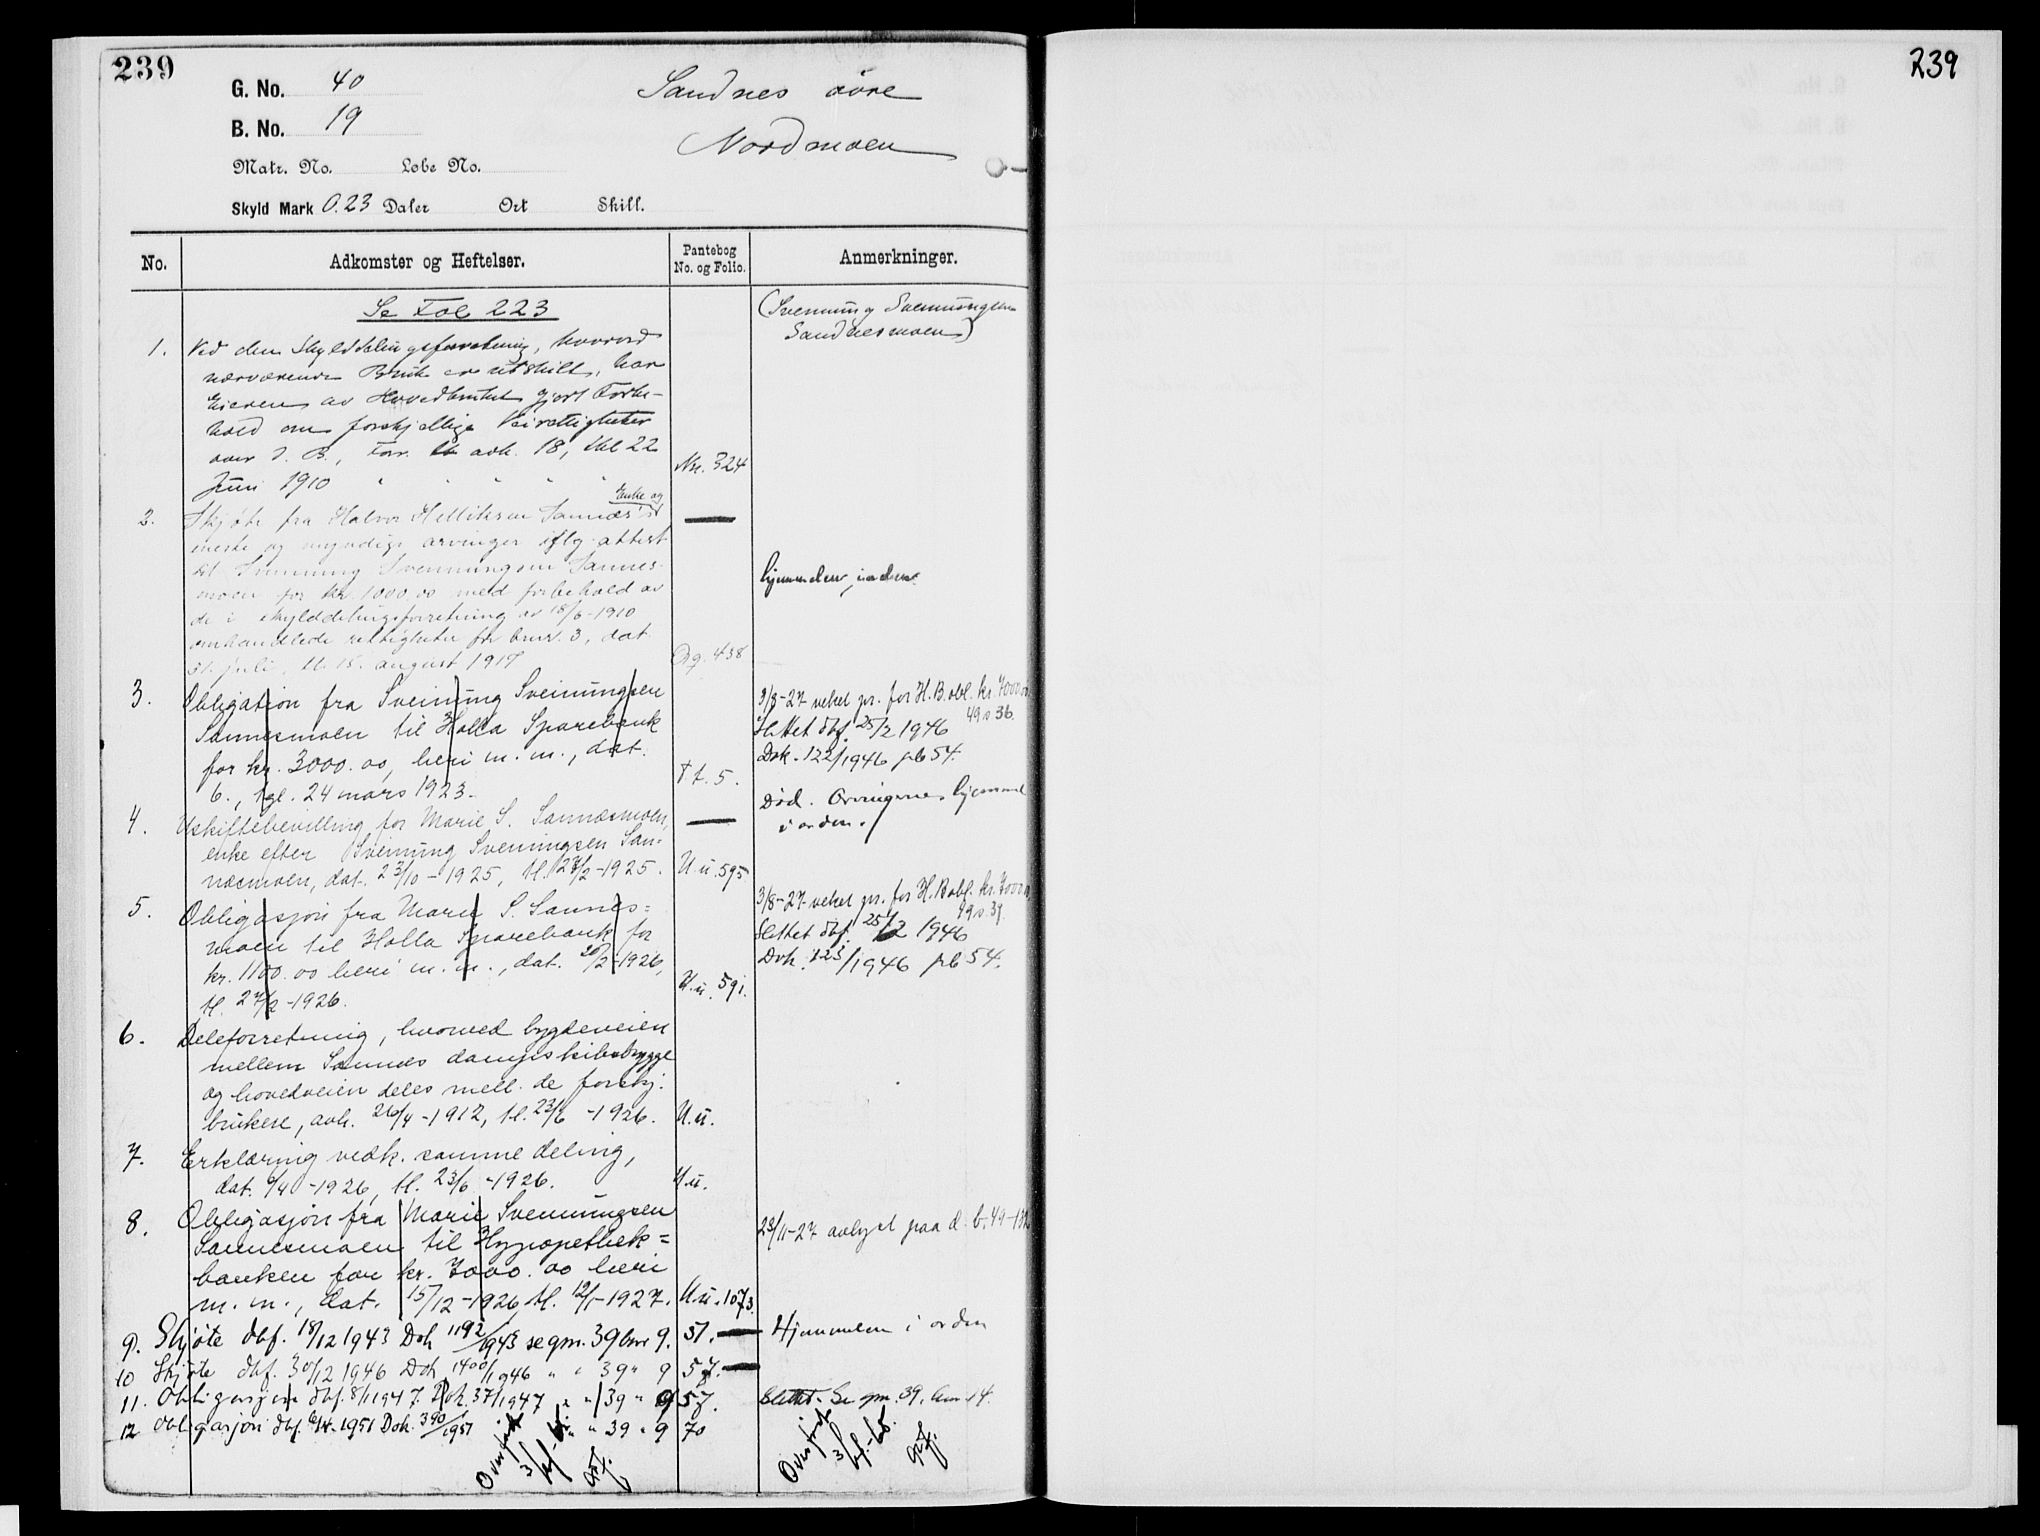 239
239
G. No. 40
Sandnes övre
B. No. 19
Nordmoen
Matr. No. Løbe No.
Skyld Mark 0.23 Daler Ort Skill.
No. Adkomster og Heftelser. Pantebog No. og Folio. Anmerkninger.
Se Fol 223
(Svennung Svennungsen
Sandnesmoen)
1. Ved den Skylddelingsforretning, hvorved
nærværende Bruk er utskilt, har
Eieren av Hovedbruket gjort Forbe-
hold om forskjellige Veirettigheter
over d. B., Forr. avh. 18, thl 22
Juni 1910 " " " " " Nr. 324
2. Skjøte fra Halvor Helliksen Sannes's Enke og
meste og umyndige arvinger iflg. attest
til Svennung Svenningsen Sannes-
moen for kr. 1000.00 med forbehold av
de i skylddelingsforretning av 18/6-1910
omhandlede rettigheter for bnr. 3, dat.
31. juli, tl. 15. august 1917 Qq. 438
Hjemmelen i orden.
3. Obligation fra Sveinung Sveinungsen
Sannesmoen til Holla Sparebank
for kr. 3000.00, heri m.m., dat.
6., tgl. 24 mars 1923. T t. 5.
3/8-27 veket pr. for H.B. obl. kr. 7000.00
49 s 36.
Slettet dbf. 25/2 1946
Dok. 122/1946 pb 54.
4. Uskiftebevilling for Marie S. Sannesmoen,
enke efter Sveinung Sveningsen San-
nesmoen, dat. 23/10-1925, tl. 23/12-1925. U u. 595
Død. Arvingenes hjemmel
i orden.
5. Obligasjon fra Marie S. Sannes=
moen til Holla Sparebank for
kr. 1100.00 heri m.m., dat. 20/2-1926,
tl. 27/2-1926. U.u. 591.
3/8-27 veket pr. for H.B obl. kr. 7000.00
49 s. 37.
Slettet dbf. 25/2 1946
Dok. 123/1946 pb 54.
6. Deleforretning, hvorved bygdeveien
mellem Sannes dampskibsbrygge
og hovedveien deles mell. de forskj.
brukere, avh. 26/4-1912, tl. 23/6-1926. U.u.
7. Erklæring vedk. samme deling,
dat. 6/4-1926, tl. 23/6-1926. U.u.
8. Obligasjon fra Marie Svennungsen
Sannesmoen til Hypothek=
banken for kr. 7000.00 heri
m.m., dat. 15/12-1926, tl. 12/1-1927. U.u. 1073.
23/11-27 avlyst paa d. b. 49-132
9. Skjøte dbf. 18/12 1943 Dok 1192/1943 se gnr. 39 bnr 9. 51. Hjemmelen i orden
10 Skjøte dbf. 30/12 1946 Dok. 1400/1946 " " 39 " 9 57.
11. Obligasjon dbf. 8/1 1947. Dok. 37/1947 " " 39 " 9 57. Slettet. Se gnr. 39, bnr 14.
12 Obligasjon dbf. 6/4-1951 Dok. 390/1951 " " 39 " 9 70
Overført
Overført